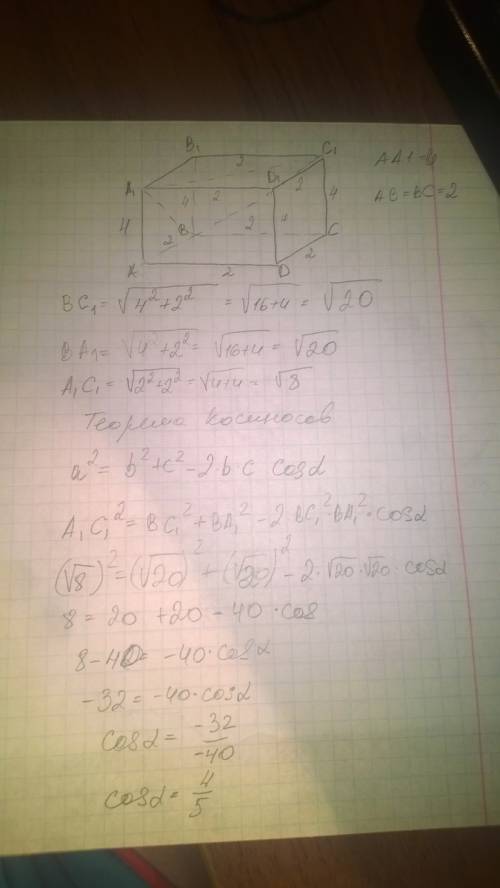 B₁
C₁
2
A₁
D₁
2
2
4
4
4
4
B
2
C
2
2
A
2
D
AA1=4
AB=BC=2
BC₁ = √(4²+2²) = √(16+4) = √20
BA₁ = √(4²+2²) = √(16+4) = √20
A₁C₁ = √(2²+2²) = √(4+4) = √8
Теорема косинусов
a² = b²+c²-2·b c cosα
A₁C₁² = BC₁² + BA₁² - 2 BC₁²·BA₁²·cosα
(√8)² = (√20)² + (√20)² - 2·√20·√20·cosα
8 = 20 + 20 - 40 · cos
8-40 = -40·cosα
-32 = -40·cosα
cosα = -32/-40
cosα = 4/5